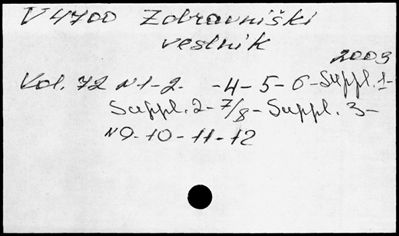 V 4700 Zdravniški
vestnik
2003
Vol. 72 N1-2- -4-5-6-Suppl.1-
Suppl.2-7/8-Suppl.3-
N9-10-11-12